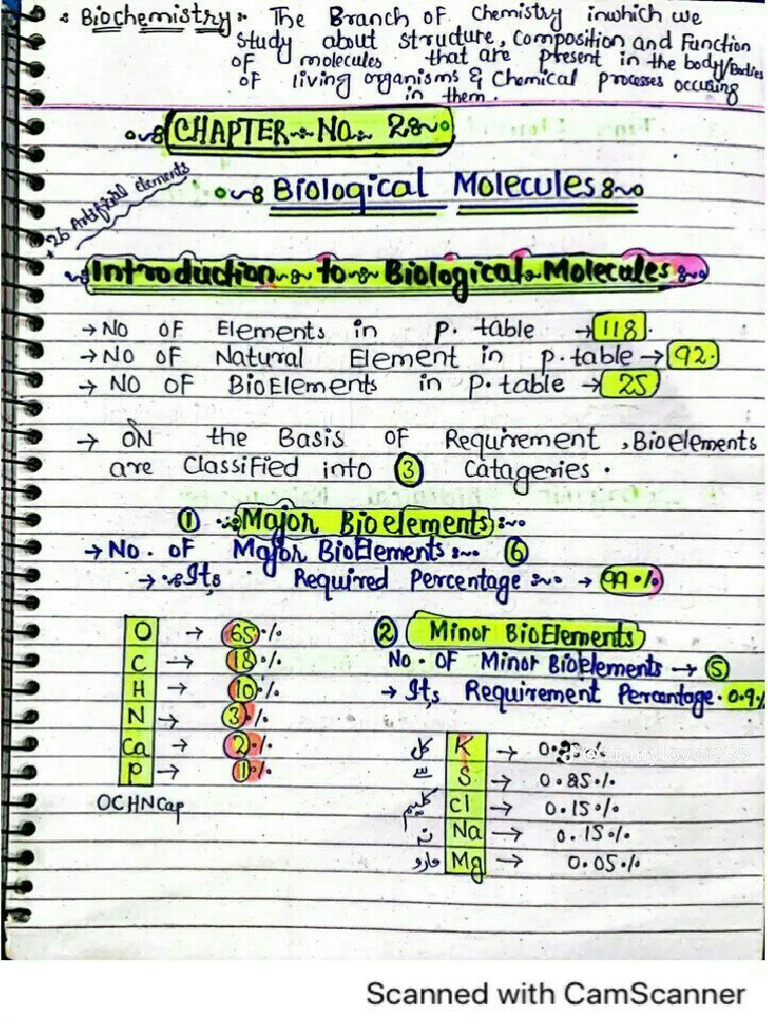 : Biochemistry:- The Branch OF Chemistry inwhich we
study about structure, Composition and Function
OF molecules that are present in the body/Bodies
OF living organisms & Chemical processes occusing
in them.
CHAPTER No. 2
+26 Artificial elements
Biological Molecules
Introduction to Biological Molecules
→ NO OF Elements in P. table → 118.
→ NO OF Natural Element in p.table → 92.
→ NO OF BioElements in p.table → 25
→ ON the Basis OF Requirement, Bioelements
are Classified into 3 Catageries.
① Major Bioelements:~
→ No. OF Major BioElements:~ ⑥
→ Its Required Percentage:~ → 99%
O → 65%
C → 18%
H → 10%
N → 3%
Ca → 2%
P → 1%
OCHNCap
② Minor BioElements
No. OF Minor Bioelements → ⑤
→ Its Requirement Percentage. 0.9%
کل K →
S → 0.25%
کلیم Cl → 0.15%
نے Na → 0.15%
مارو Mg → 0.05%
Scanned with CamScanner